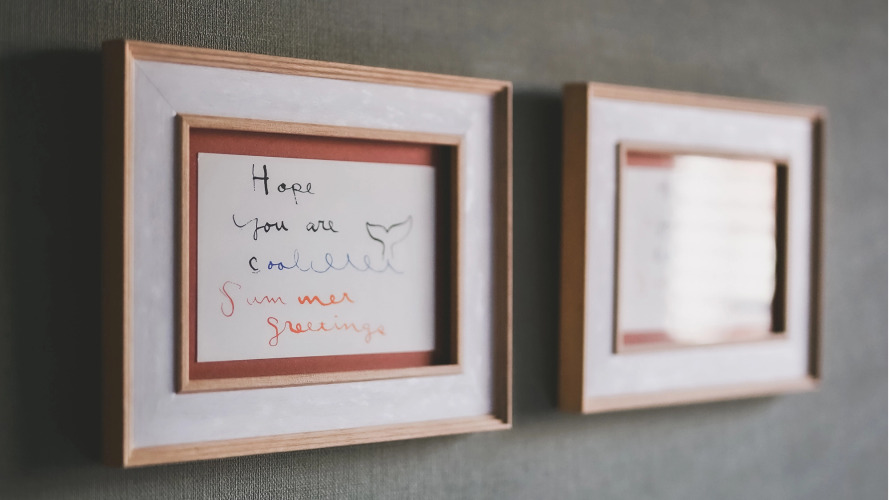 Hope
you are
Summer
greetings